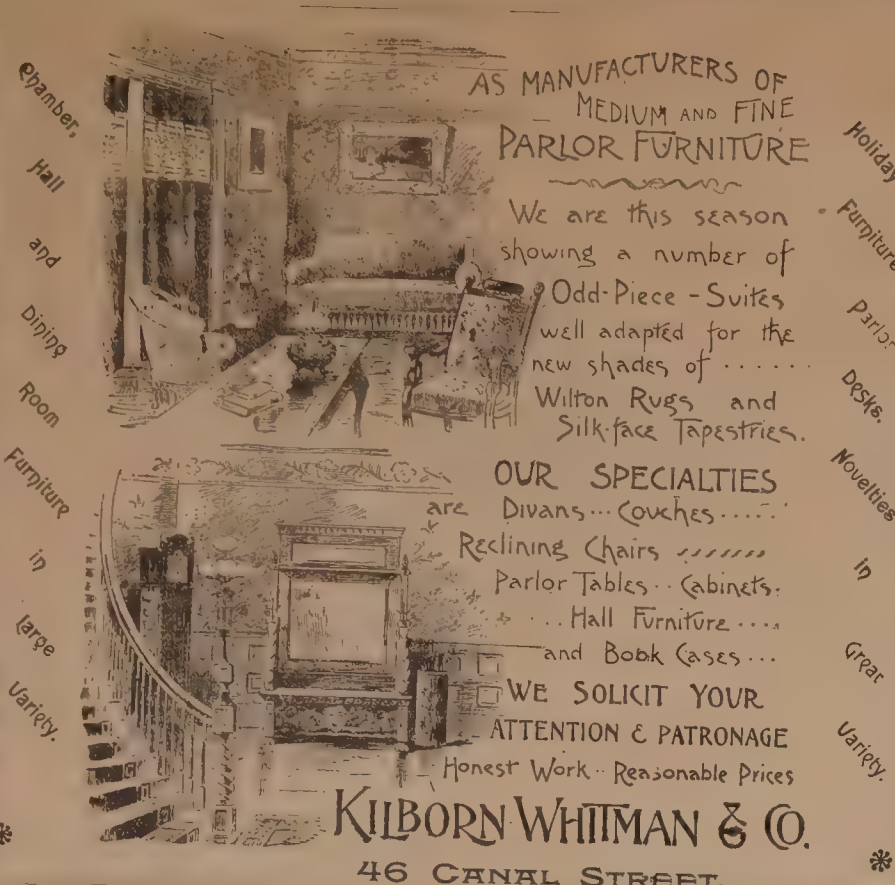 Chamber,
Hall
and
Dining
Room
Furniture
in
large
Variety.
AS MANUFACTURERS OF
MEDIUM AND FINE
PARLOR FURNITURE
We are this season
showing a number of
Odd-Piece - Suites
well adapted for the
new shades of ......
Wilton Rugs and
Silk-face Tapestries.
OUR SPECIALTIES
are Divans... Couches .....
Reclining Chairs
Parlor Tables .. Cabinets.
... Hall Furniture ....
and Book Cases ...
WE SOLICIT YOUR
ATTENTION & PATRONAGE
Honest Work .. Reasonable Prices
KILBORN WHITMAN & CO.
46 CANAL STREET.
Holiday
Furniture
Parlor
Desks.
Novelties
in
Great
Variety.